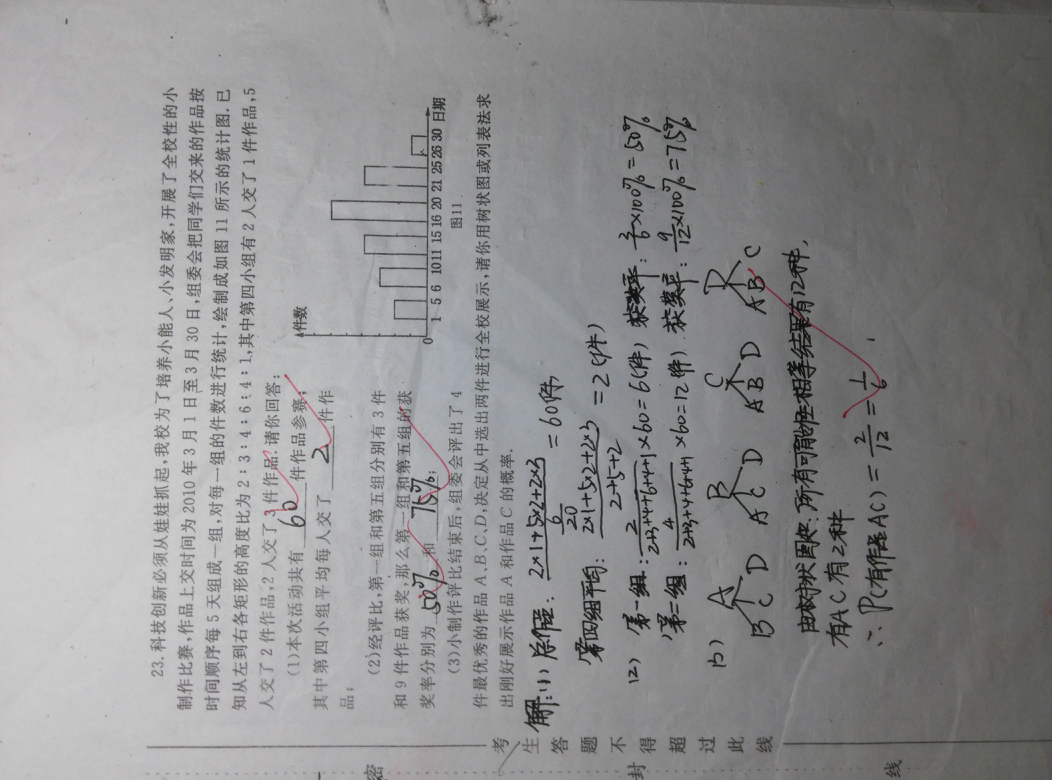 23.科技创新必须从娃娃抓起.我校为了培养小能人、小发明家,开展了全校性的小
制作比赛,作品上交时间为2010年3月1日至3月30日,组委会把同学们交来的作品按
时间顺序每5天组成一组,对每一组的件数进行统计,绘制成如图11所示的统计图.已
知从左到右各矩形的高度比为2:3:4:6:4:1,其中第四小组有2人交了1件作品,5
人交了2件作品,2人交了3件作品.请你回答:
(1)本次活动共有 60 件作品参赛;
其中第四小组平均每人交了 2 件作
品;
(2)经评比,第一组和第五组分别有3件
和9件作品获奖,那么第一组和第五组的获
奖率分别为 50% 和 75%;
(3)小制作评比结束后,组委会评出了4
件最优秀的作品A、B、C、D,决定从中选出两件进行全校展示,请你用树状图或列表法求
出刚好展示作品A和作品C的概率.
件数
0 1 5 6 10 11 15 16 20 21 25 26 30 日期
图11
解:(1) 总作品: 2×1+5×2+2×3 / 6/20 = 60件
第四组平均: 2×1+5×2+2×3 / 2+5+2 = 2(件)
(2) 第一组: 2/2+3+4+6+4+1 ×60=6(件) 获奖率: 3/6×100%=50%
第二组: 4/2+3+4+6+4+1 ×60=12(件) 获奖率: 9/12×100%=75%
(3) A B C D
B C D A C D A B D A B C
由树状图知:所有可能性相等结果有12种,
有AC有2种
∴P(有作品AC)=2/12=1/6.
考生答题不得超过此线
密
封
线